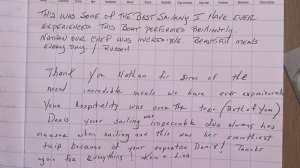 THIS WAS SOME OF THE BEST SAILING I HAVE EVER
EXPERIENCED. THIS BOAT PERFORMED BRILLIANTLY
NATHAN OUR CHEF WAS INCREDIBLE BEAUTIFUL MEALS
EVERY DAY / Russell
Thank you Nathan for some of the
most incredible meals we have ever experienced
Your hospitality was over the top (both of you)
Dave your sailing was impeccable
nervous when sailing and this was her
trip because of your expertise Dave! Thanks
again for everything!